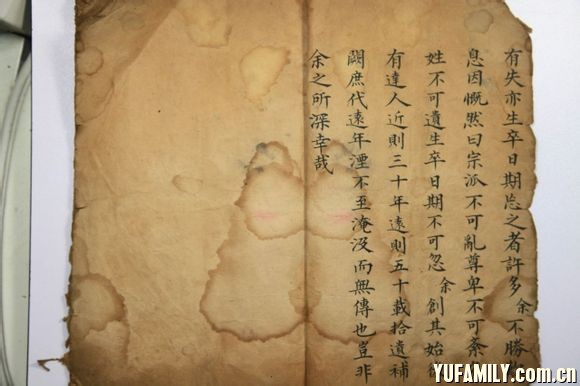 有失亦生卒日期忘之者許多余不勝
息因慨然曰宗派不可亂尊卑不可紊
姓不可遺生卒日期不可忽余創其始
有達人近則三十年遠則五十載拾遺補
闕庶代遠年湮不至淹没而無傳也豈非
余之所深幸哉
YUFAMILY.com.cn